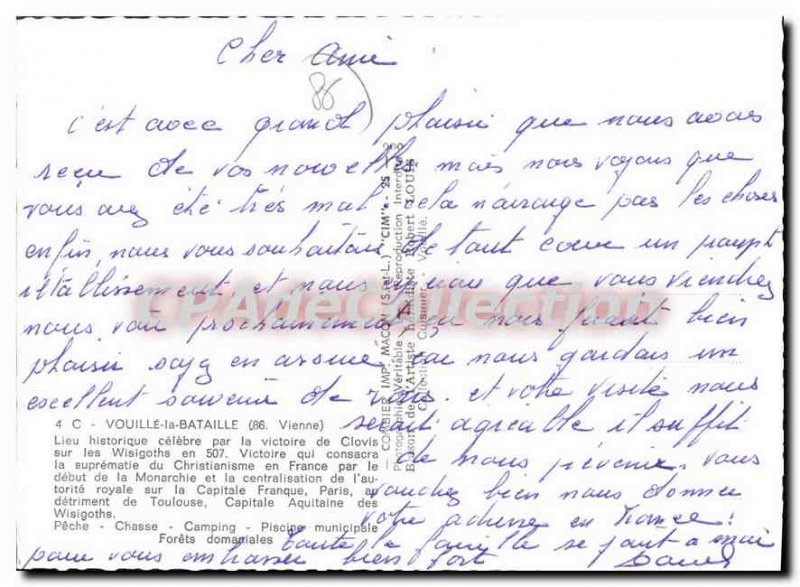 Cher Ami
86
c'est avec grand plaisir que nous avons
reçu de vos nouvelles, mais nous voyons que
vous avez été très mal cela n'arrange pas les choses
enfin, nous vous souhaitons de tout coeur un prompt
rétablissement et nous que vous viendrez
nous voir prochainement, ça nous ferait bien
plaisir soyez en car nous gardons un
excellent souvenir de vous. et votre visite nous
serait agréable il suffit
de nous prévenir. vous
voudrez bien nous donner
votre adresse en France.
toute la famille se joint à moi
pour vous embrasser bien fort
4 C - VOUILLÉ-la-BATAILLE (86. Vienne)
Lieu historique célèbre par la victoire de Clovis
sur les Wisigoths en 507. Victoire qui consacra
la suprématie du Christianisme en France par le
début de la Monarchie et la centralisation de l'au-
torité royale sur la Capitale Franque, Paris, au
détriment de Toulouse, Capitale Aquitaine des
Wisigoths.
Pêche - Chasse - Camping - Piscine municipale
Forêts domaniales
COMBIER IMP. MACON (S.A.R.L.) "CIM"
Photographie Véritable - Reproduction Interdite
Blason de l'Artiste Héraldiste Robert LOUIS
Collection Cuisinier - Vouillé.
CPAdeCollection